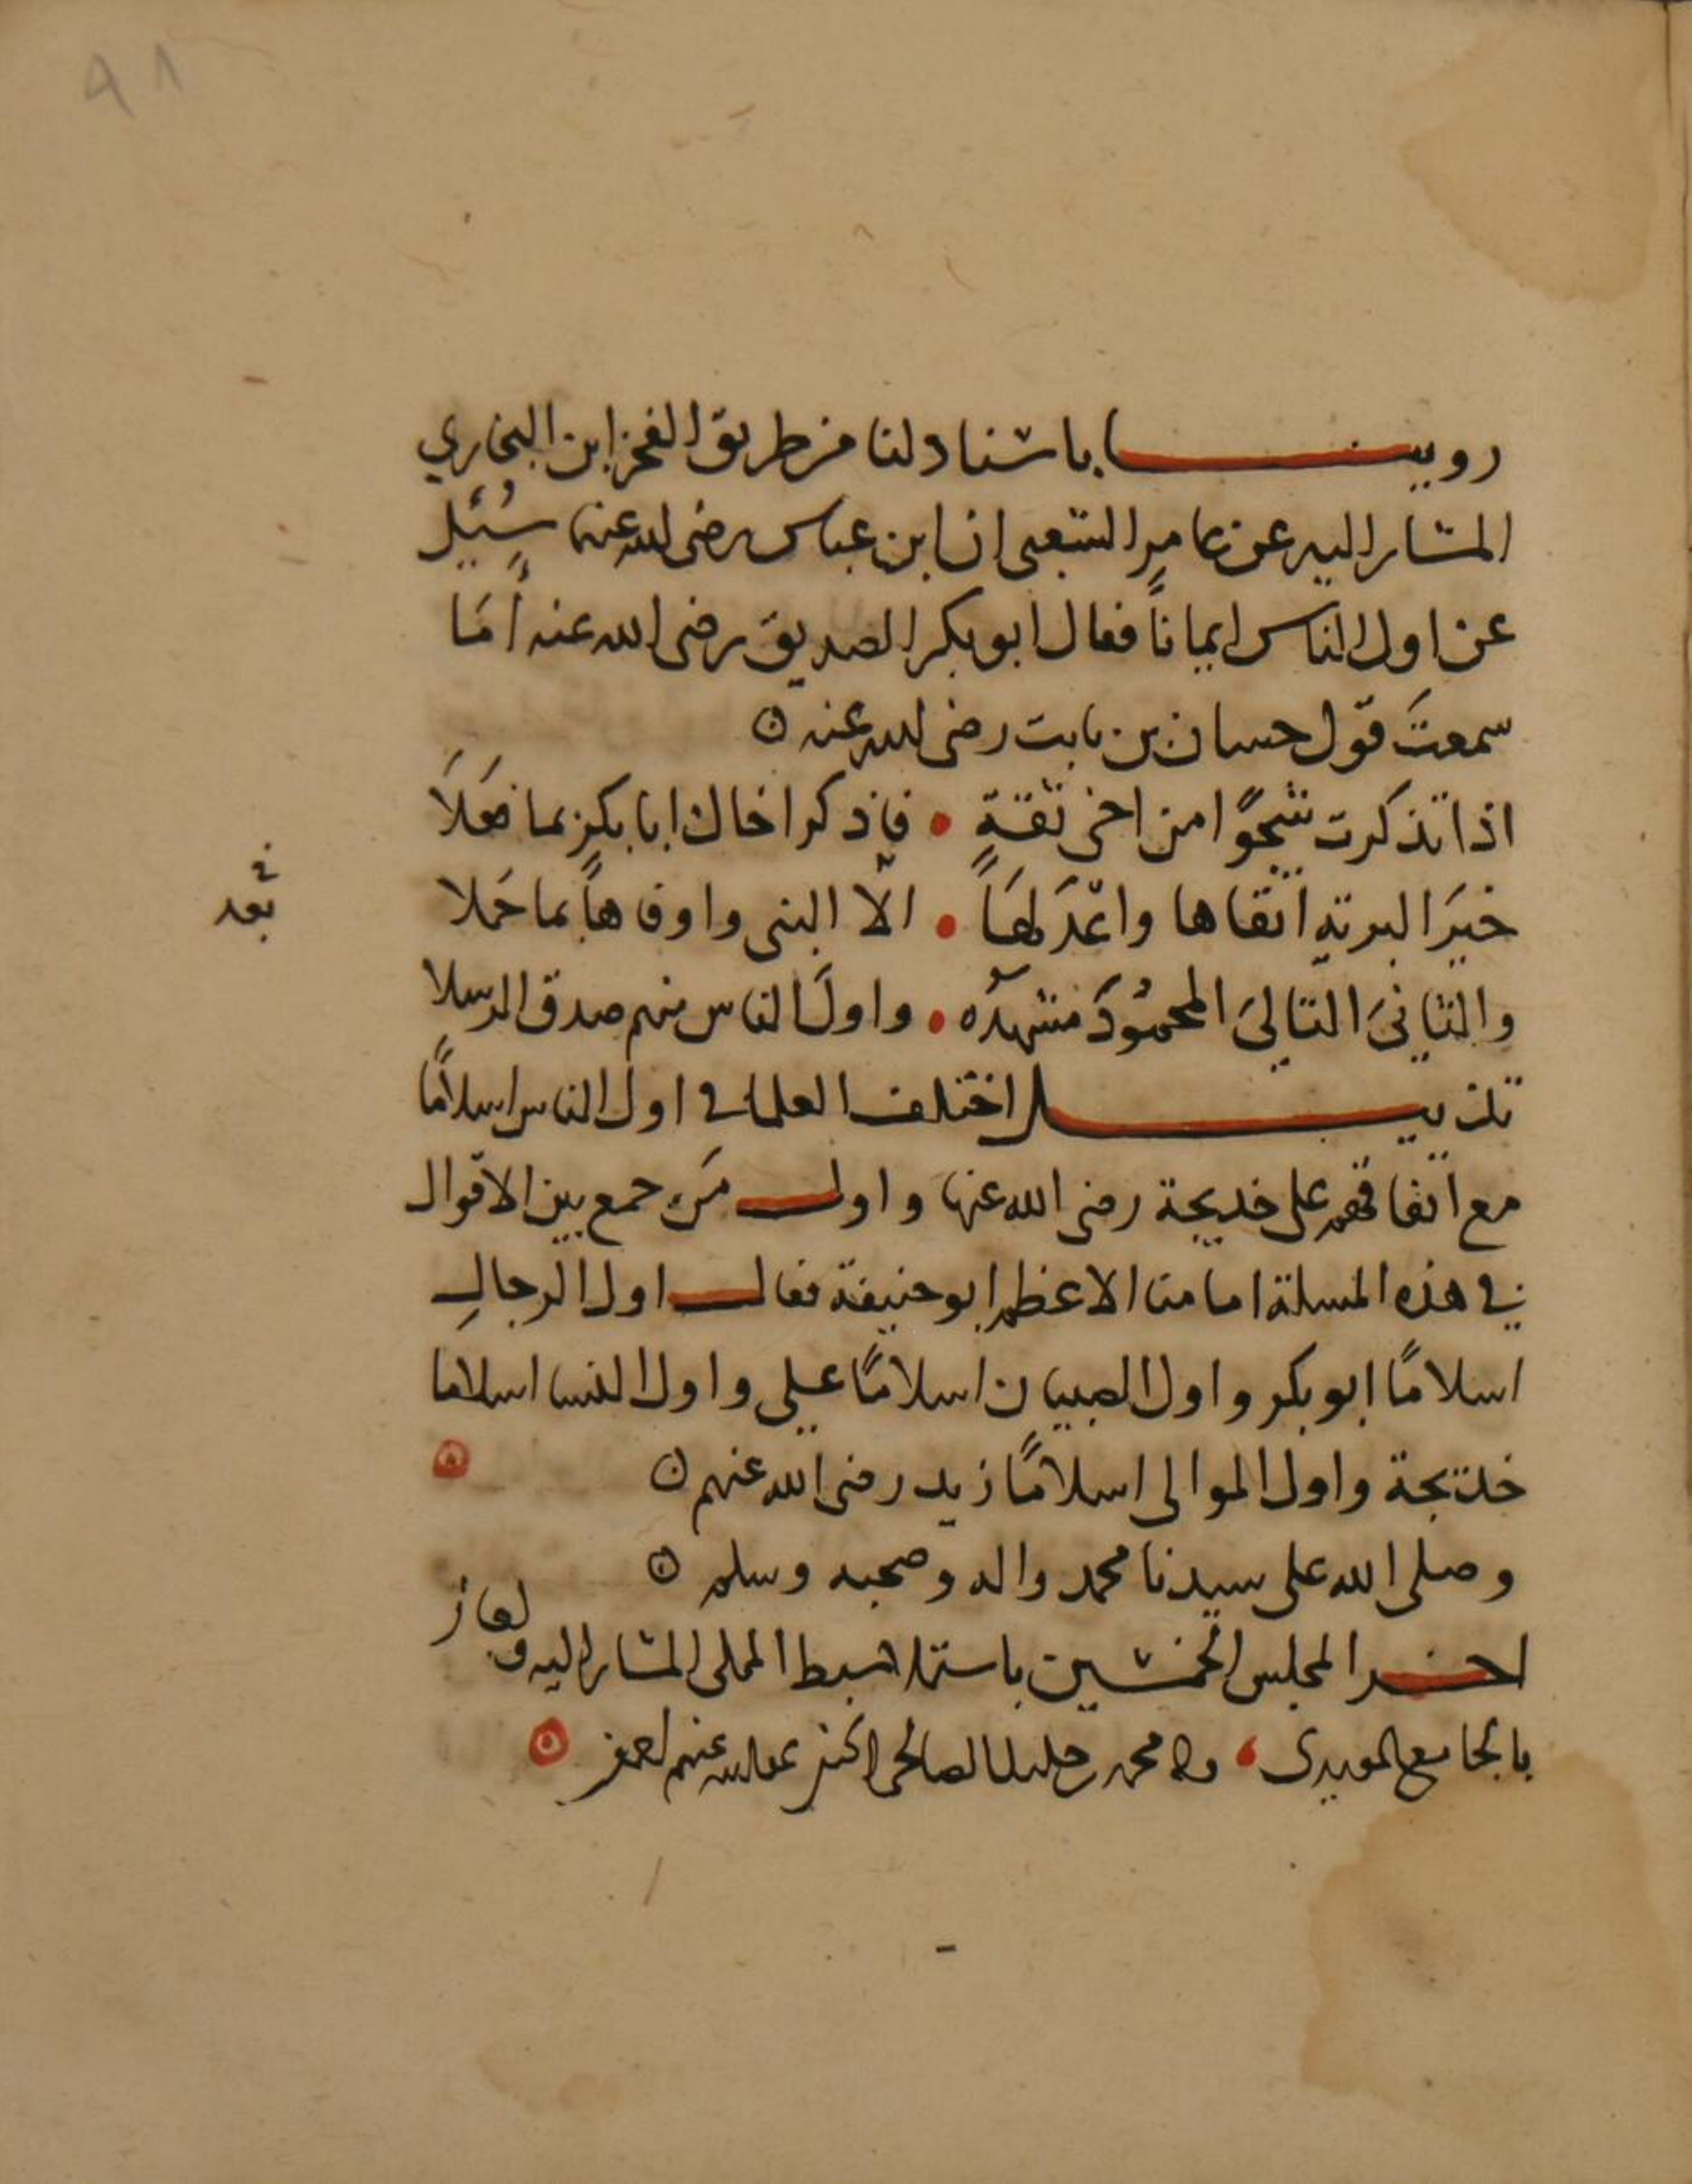 ٩٨
روينا باسنادلنا من طريق الفخر ابن البخاري
المشار اليه عن عامر الشعبي ان ابن عباس رضى الله عنهما سُئِل
عن اول الناس ايماناً فقال ابو بكر الصديق رضى الله عنه أمَا
سمعتَ قول حسان بن ثابت رضى الله عنه
اذا تذكرت شجوًا من اخى ثقةٍ • فاذكر اخاك ابا بكر بما فعَلاَ
خيرَ البريّةِ اتقاها واعْدَلهَا • الّا النبى واوفاها بما حَملا
في
بعد
والثانىَ التالىَ المحمُودَ مشهدُه • واولَ الناس منهم صدق الرسلا
تذييل اختلف العلما في اول الناس اسلامًا
مع اتفاقهم على خديجة رضى الله عنها واول مَن جمع بين الاقوال
في هذه المسلة امامنا الاعظم ابو حنيفة فقال اول الرجالِ
اسلامًا ابو بكر واول الصبيان اسلامًا على واول النسا اسلاما
خديجة واول الموالى اسلامًا زيد رضى الله عنهم
وصلى الله على سيدنا محمد واله وصحبه وسلم
اخر المجلس الخمسين باستملا سبط المملى المشار اليه
بالجامع المويدى • محمد خليل الصالحى عنهم